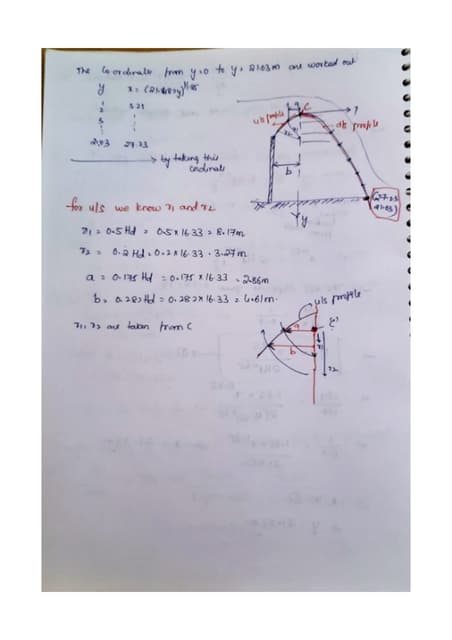 The Coordinate from y=0 to y= 21.03m are worked out
y x=
1 5.21
2
3
27.23
by taking this
cordinate
u/s profile
C
d/s profile
b
y
for u/s we know r1 and r2
r1 = 0.5 Hd = 0.5x16.33 = 8.17m
r2 = 0.2 Hd = 0.2x16.33 = 3.27m
a = 0.175 Hd = 0.175 x 16.33 = 2.86m
b = 0.282 Hd = 0.282x16.33 = 4.61m
r1, r2 are taken from C
u/s profile
a
b
r1
r2